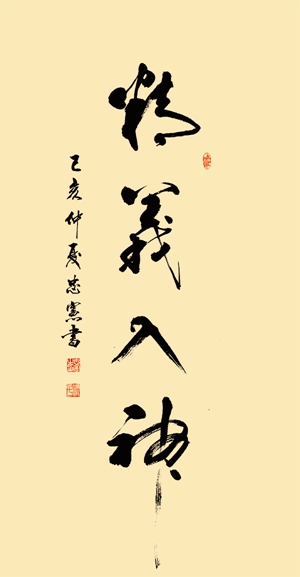 精義入神
己亥仲夏忠憲書